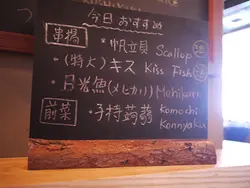 今日おすすめ
串揚
・帆立貝 Scallop
・(特大)キス Kiss Fish
・目光魚(メヒカリ) Mehikari
前菜 ・子持蒟蒻 Komochi
Konnyaku